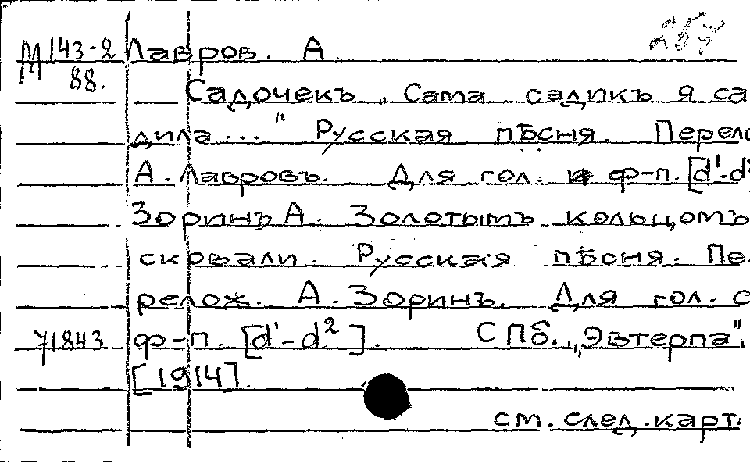 М 143-2 Лавров. А
88.
Садочекъ „Сама садикъ я са
дила..." Русская пѣсня. Перел
А. Лавровъ. Для гол. и ф-п. [d'-d²
Зоринъ А. Золотымъ кольцомъ
сковали. Русская пѣсня. Пе-
релож. А. Зоринъ. Для гол. с
71843 ф-п. [d'-d²]. СПб. „Эвтерпа".
[1914].
см. след. карт.